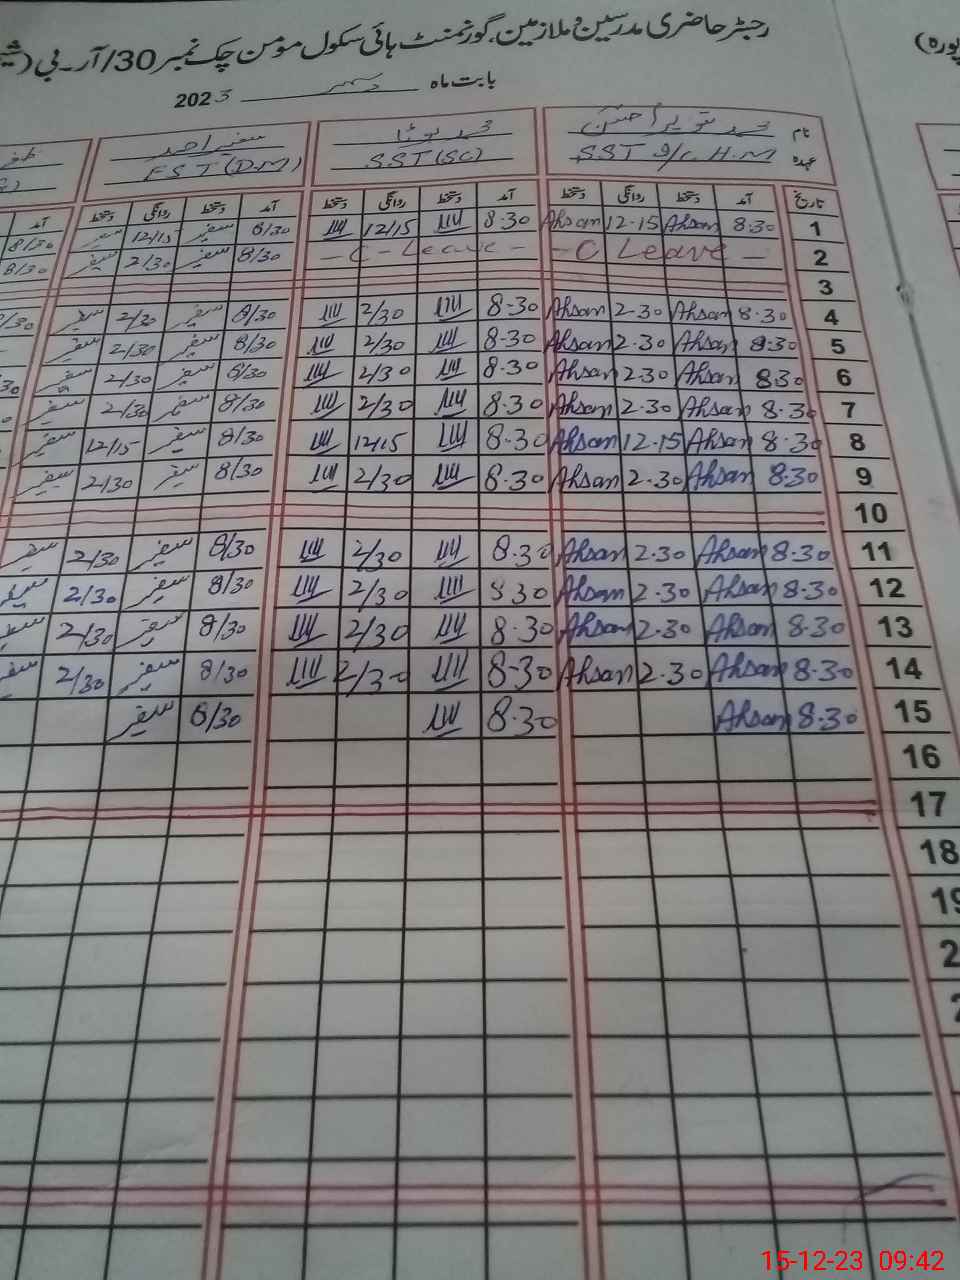 رجسٹر حاضری مدرسین و ملازمین گورنمنٹ ہائی سکول مومن چک نمبر 30/آر۔بی (شیخو
پورہ)
بابت ماہ دسمبر 2023
نام محمد تنویر احسن محمد بوٹا سفیر احمد ظفر
عہدہ SST I/C H.M SST (SC) EST (D.M)
تاریخ آمد دستخط روانگی دستخط آمد دستخط روانگی دستخط آمد دستخط روانگی دستخط آمد دستخط
1 8.30 Ahsan 12.15 Ahsan 8.30 12/15 8/30 سفیر 12/15 سفیر 8/30
2 C Leave - C - Leave - 8/30 سفیر 2/30 سفیر 8/30
3
4 8.30 Ahsan 2.30 Ahsan 8.30 2/30 8/30 سفیر 2/30 سفیر 8/30
5 8.30 Ahsan 2.30 Ahsan 8.30 2/30 8/30 سفیر 2/30 سفیر
6 8.30 Ahsan 2.30 Ahsan 8.30 2/30 8/30 سفیر 2/30 سفیر
7 8.30 Ahsan 2.30 Ahsan 8.30 2/30 8/30 سفیر 2/30 سفیر
8 8.30 Ahsan 12.15 Ahsan 8.30 12/15 8/30 سفیر 12/15 سفیر
9 8.30 Ahsan 2.30 Ahsan 8.30 2/30 8/30 سفیر 2/30 سفیر
10
11 8.30 Ahsan 2.30 Ahsan 8.30 2/30 8/30 سفیر 2/30 سفیر
12 8.30 Ahsan 2.30 Ahsan 8 30 2/30 8/30 سفیر 2/30 سفیر
13 8.30 Ahsan 2.30 Ahsan 8.30 2/30 8/30 سفیر 2/30
14 8.30 Ahsan 2.30 Ahsan 8.30 2/30 8/30 سفیر 2/30
15 8.30 Ahsan 8.30 8/30 سفیر
16
17
18
19
2
2
15-12-23 09:42